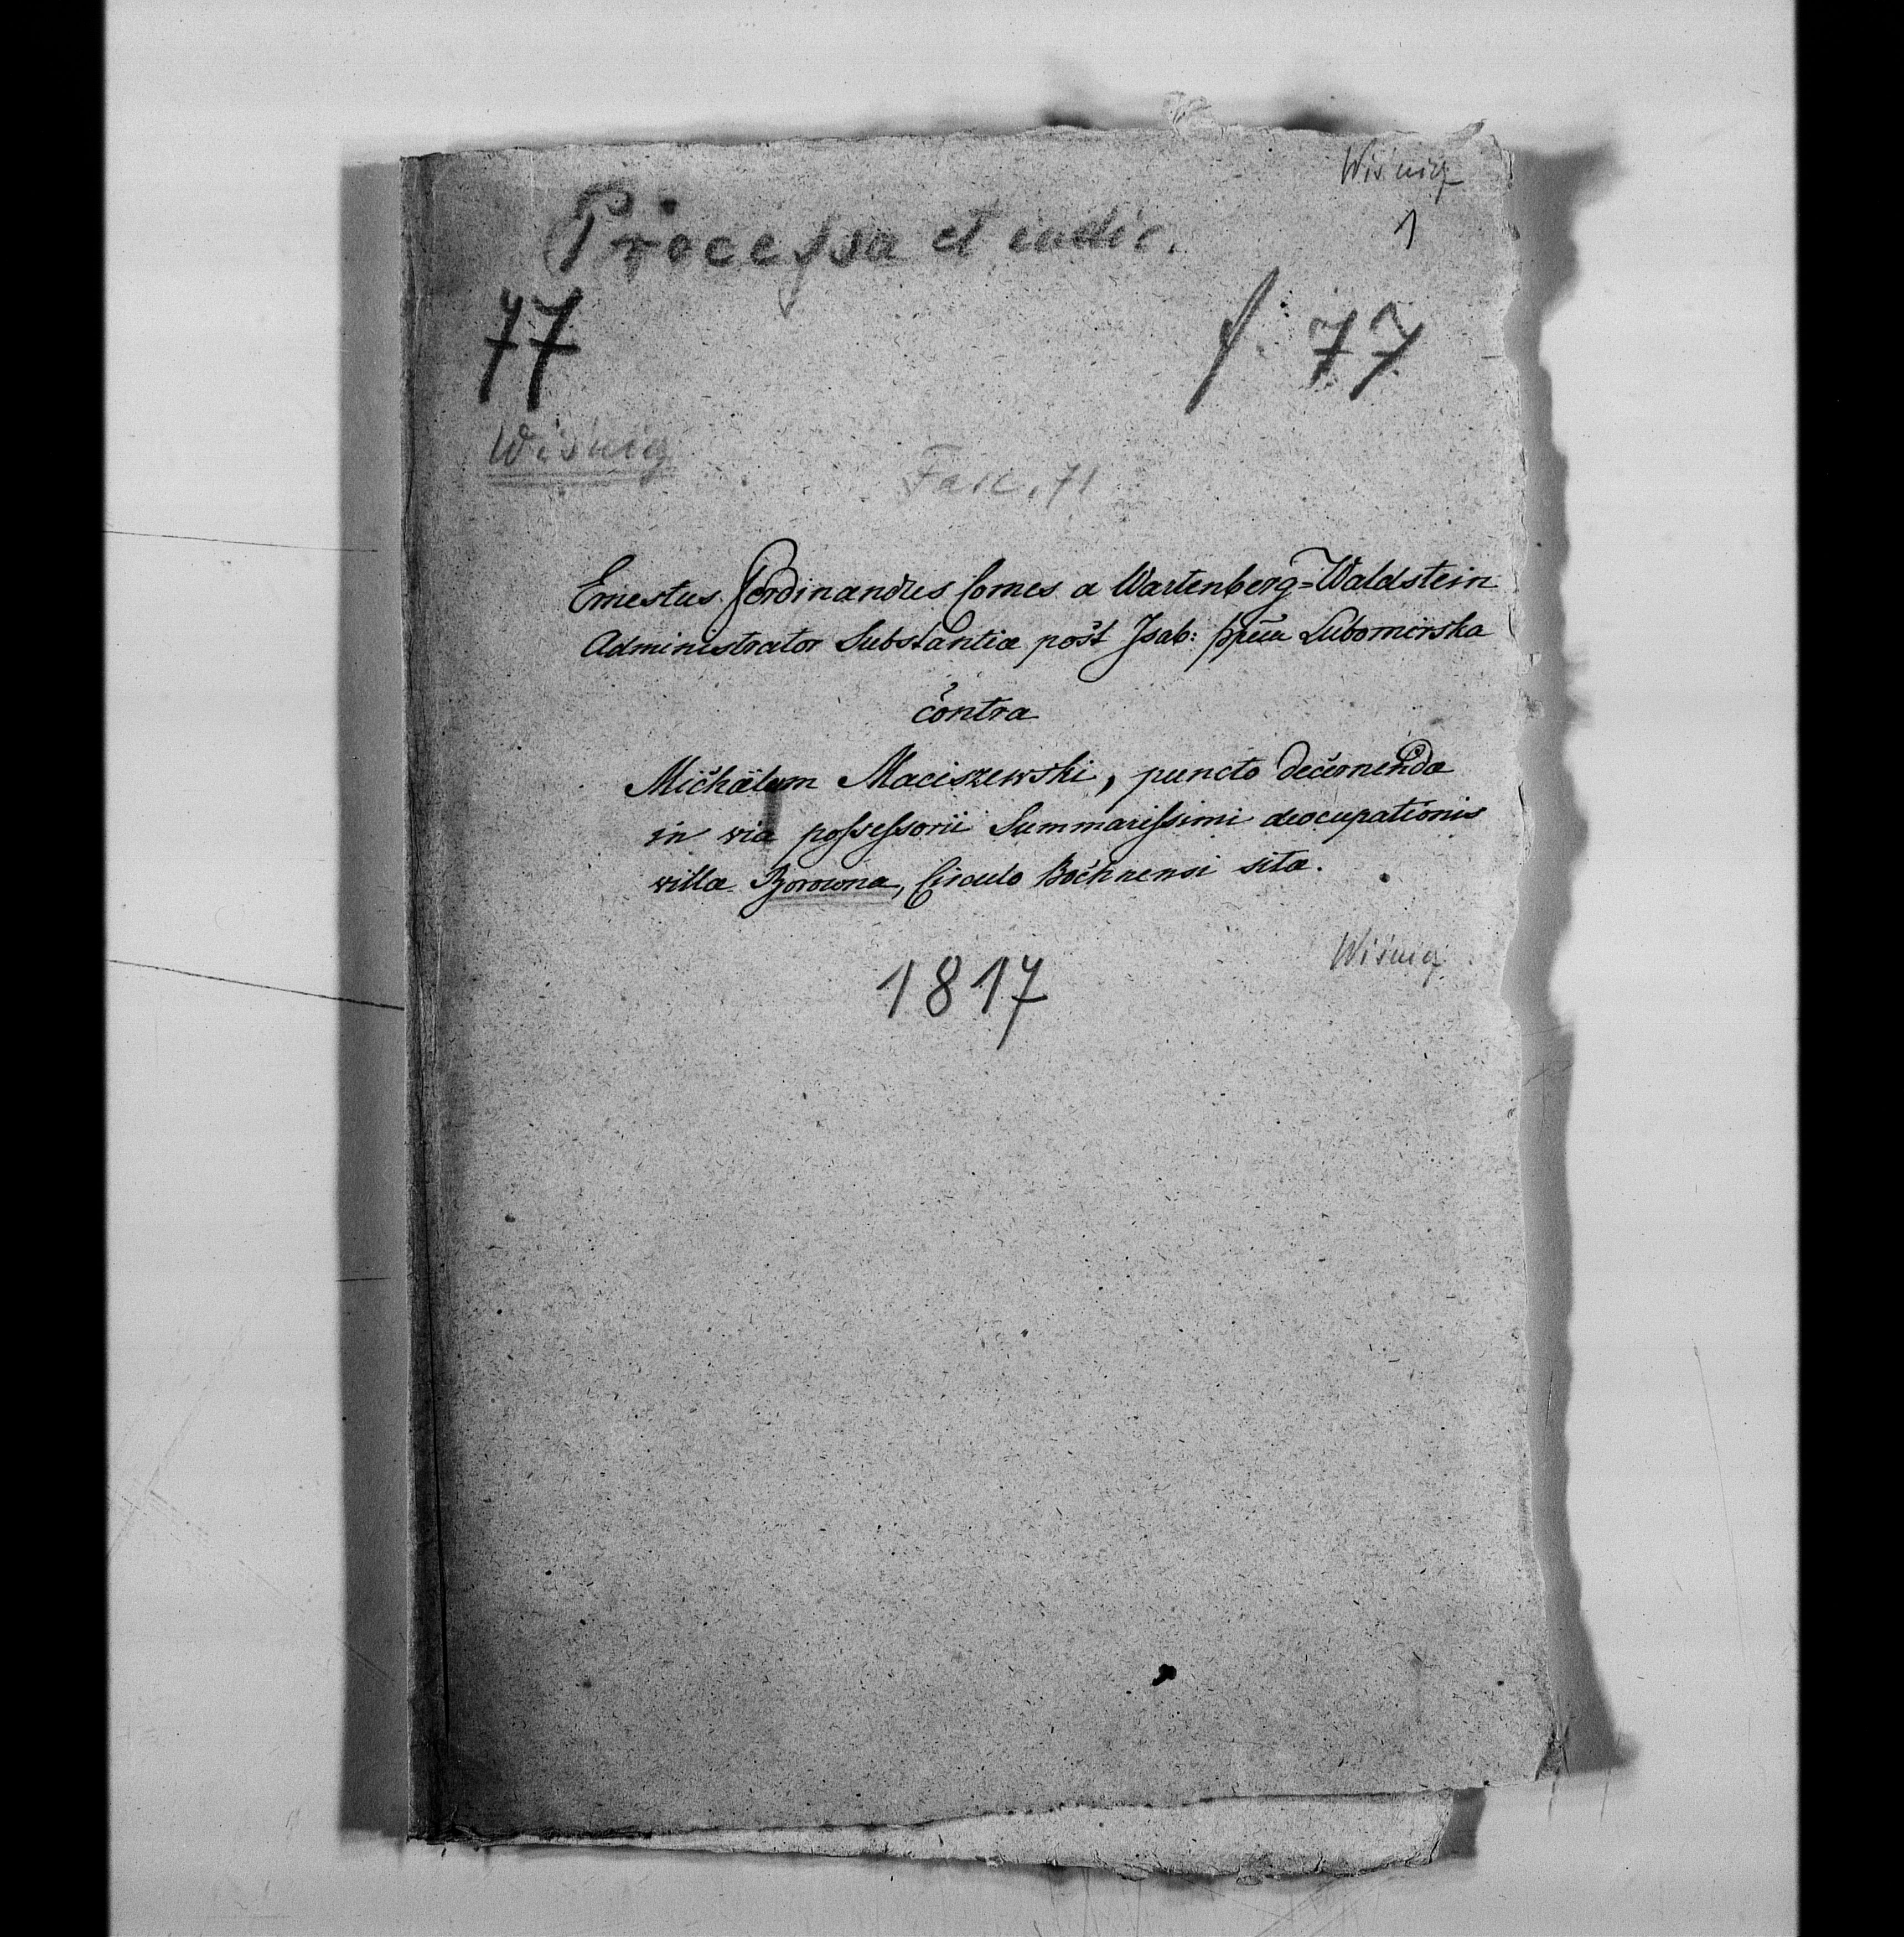 Wiśnicz
1
Processa et iudic.
77
f. 77
Wiśnicz
Fasc. 71
Ernestus Ferdinandus Comes a Wartenberg=Waldstein
Administrator Substantiæ post Isab: Lubomirska
contra
Michälem Maciszewski, puncto decernenda
in via possessorii Summarissimi deocupationis
villæ Borowna, Circulo Bochnensi sita.
Wiśnicz
1817